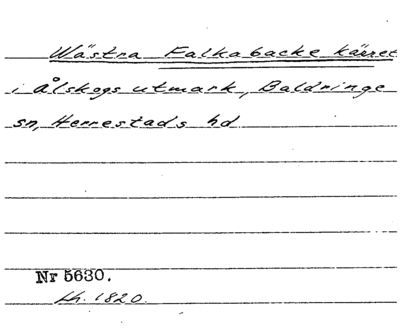 Wästra Falkabacke kärret
i Ålskogs utmark, Baldringe
sn, Herrestads hd
Nr 5630.
Lh. 1820.